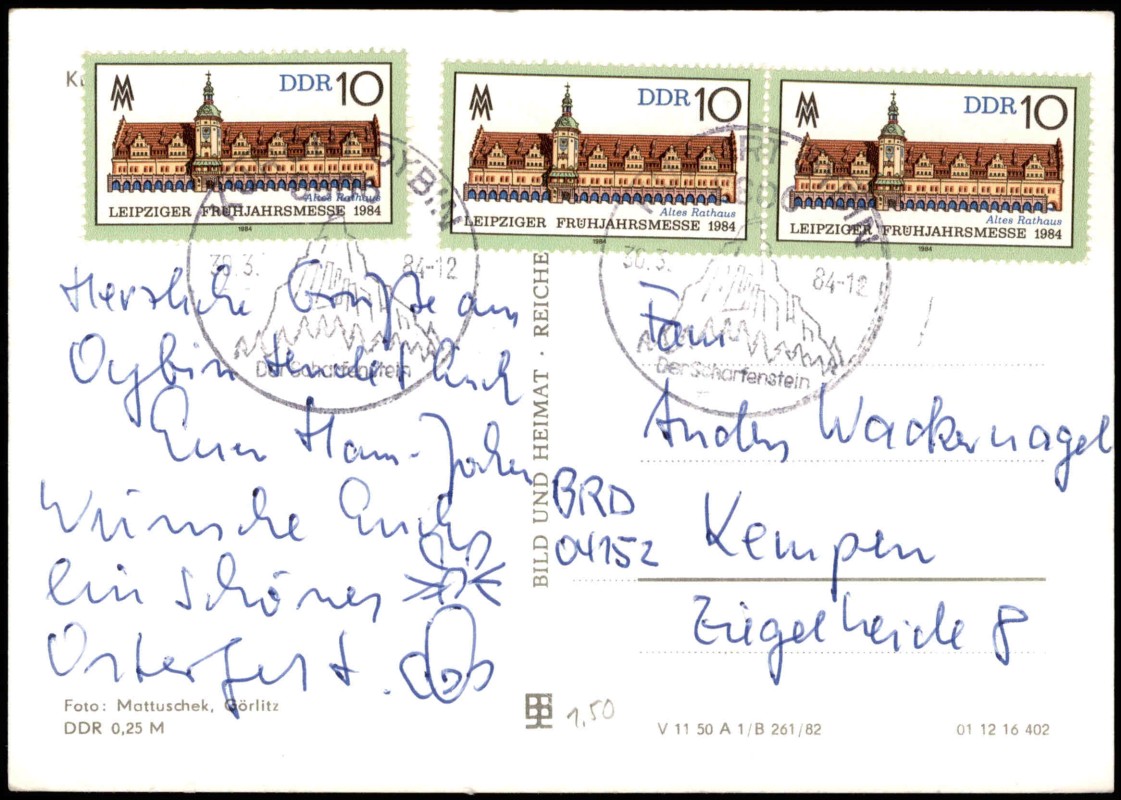 DDR 10
Altes Rathaus
LEIPZIGER FRÜHJAHRSMESSE 1984
1984
DDR 10
Altes Rathaus
LEIPZIGER FRÜHJAHRSMESSE 1984
1984
DDR 10
Altes Rathaus
LEIPZIGER FRÜHJAHRSMESSE 1984
1984
OYBIN
30.3. 84-12
Der Scharfenstein
30.3. 84-12
Der Scharfenstein
Herzliche Grüße aus
Oybin sendet Euch
Euer Hans-Jochen
Wünsche Euch
ein schönes
Osterfest.
BILD UND HEIMAT · REICHE
Fam
Anders Wackernagel
BRD
04152 Kempen
Ziegelheide 8
Foto: Mattuschek, Görlitz
DDR 0,25 M
1,50
V 11 50 A 1/B 261/82
01 12 16 402